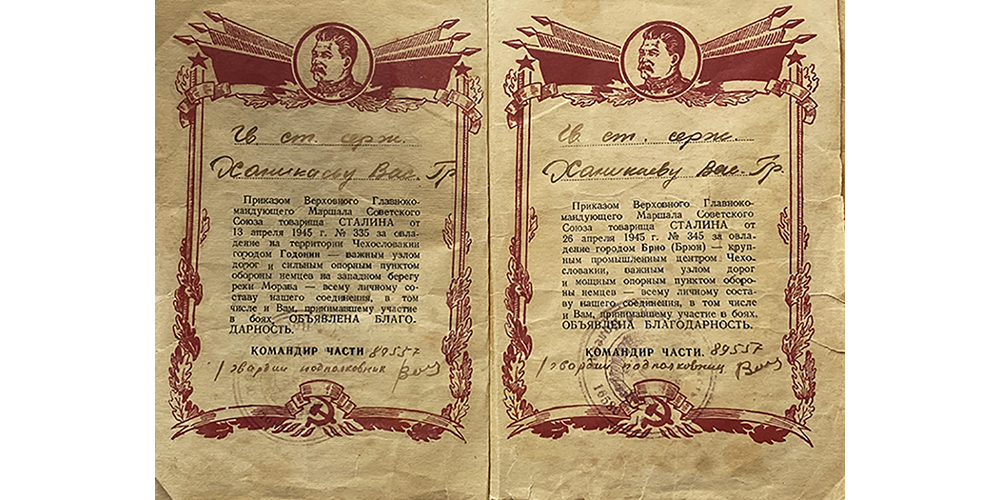 Гв. ст. серж.
Ханикаеву Вас. Гр
Приказом Верховного Главноко-
мандующего Маршала Советского
Союза товарища СТАЛИНА от
13 апреля 1945 г. № 335 за овла-
дение на территории Чехословакии
городом Годонин — важным узлом
дорог и сильным опорным пунктом
обороны немцев на западном берегу
реки Морава — всему личному со-
ставу нашего соединения, в том
числе и Вам, принимавшему участие
в боях, ОБЪЯВЛЕНА БЛАГО.
ДАРНОСТЬ.
КОМАНДИР ЧАСТИ 89557
гвардии подполковник
Гв. ст. серж.
Ханикаеву Вас. Гр.
Приказом Верховного Главноко-
мандующего Маршала Советского
Союза товарища СТАЛИНА от
26 апреля 1945 г. № 345 за овла-
дение городом Брно (Брюн) — круп-
ным промышленным центром Чехо-
словакии, важным узлом дорог
и мощным опорным пунктом оборо-
ны немцев — всему личному соста-
ву нашего соединения, в том числе
и Вам, принимавшему участие в боях,
ОБЪЯВЛЕНА БЛАГОДАРНОСТЬ.
КОМАНДИР ЧАСТИ. 89557
гвардии подполковник